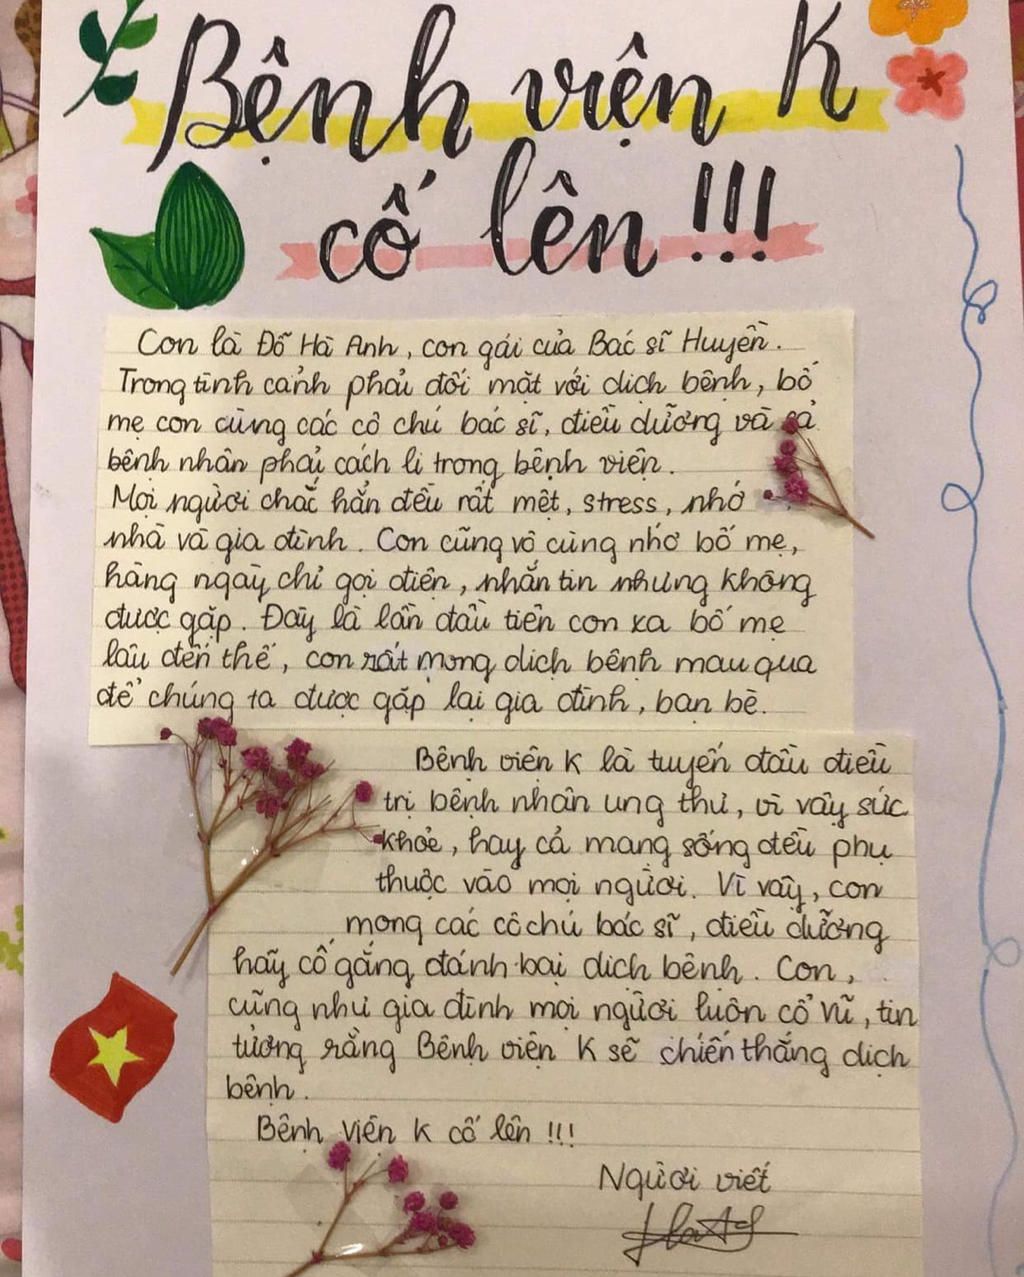 Bệnh viện K
cố lên!!!
Con là Đỗ Hà Anh, con gái của Bác sĩ Huyền.
Trong tình cảnh phải đối mặt với dịch bệnh, bố
mẹ con cùng các cô chú bác sĩ, điều dưỡng và cả
bệnh nhân phải cách li trong bệnh viện.
Mọi người chắc hẳn đều rất mệt, stress, nhớ
nhà và gia đình. Con cũng vô cùng nhớ bố mẹ,
hàng ngày chỉ gọi điện, nhắn tin nhưng không
được gặp. Đây là lần đầu tiên con xa bố mẹ
lâu đến thế, con rất mong dịch bệnh mau qua
để chúng ta được gặp lại gia đình, bạn bè.
Bệnh viện K là tuyến đầu điều
trị bệnh nhân ung thư, vì vậy sức
khoẻ, hay cả mạng sống đều phụ
thuộc vào mọi người. Vì vậy, con
mong các cô chú bác sĩ, điều dưỡng
hãy cố gắng đánh bại dịch bệnh. Con,
cũng như gia đình mọi người luôn cổ vũ, tin
tưởng rằng Bệnh viện K sẽ chiến thắng dịch
bệnh.
Bệnh viện K cố lên !!!
Người viết